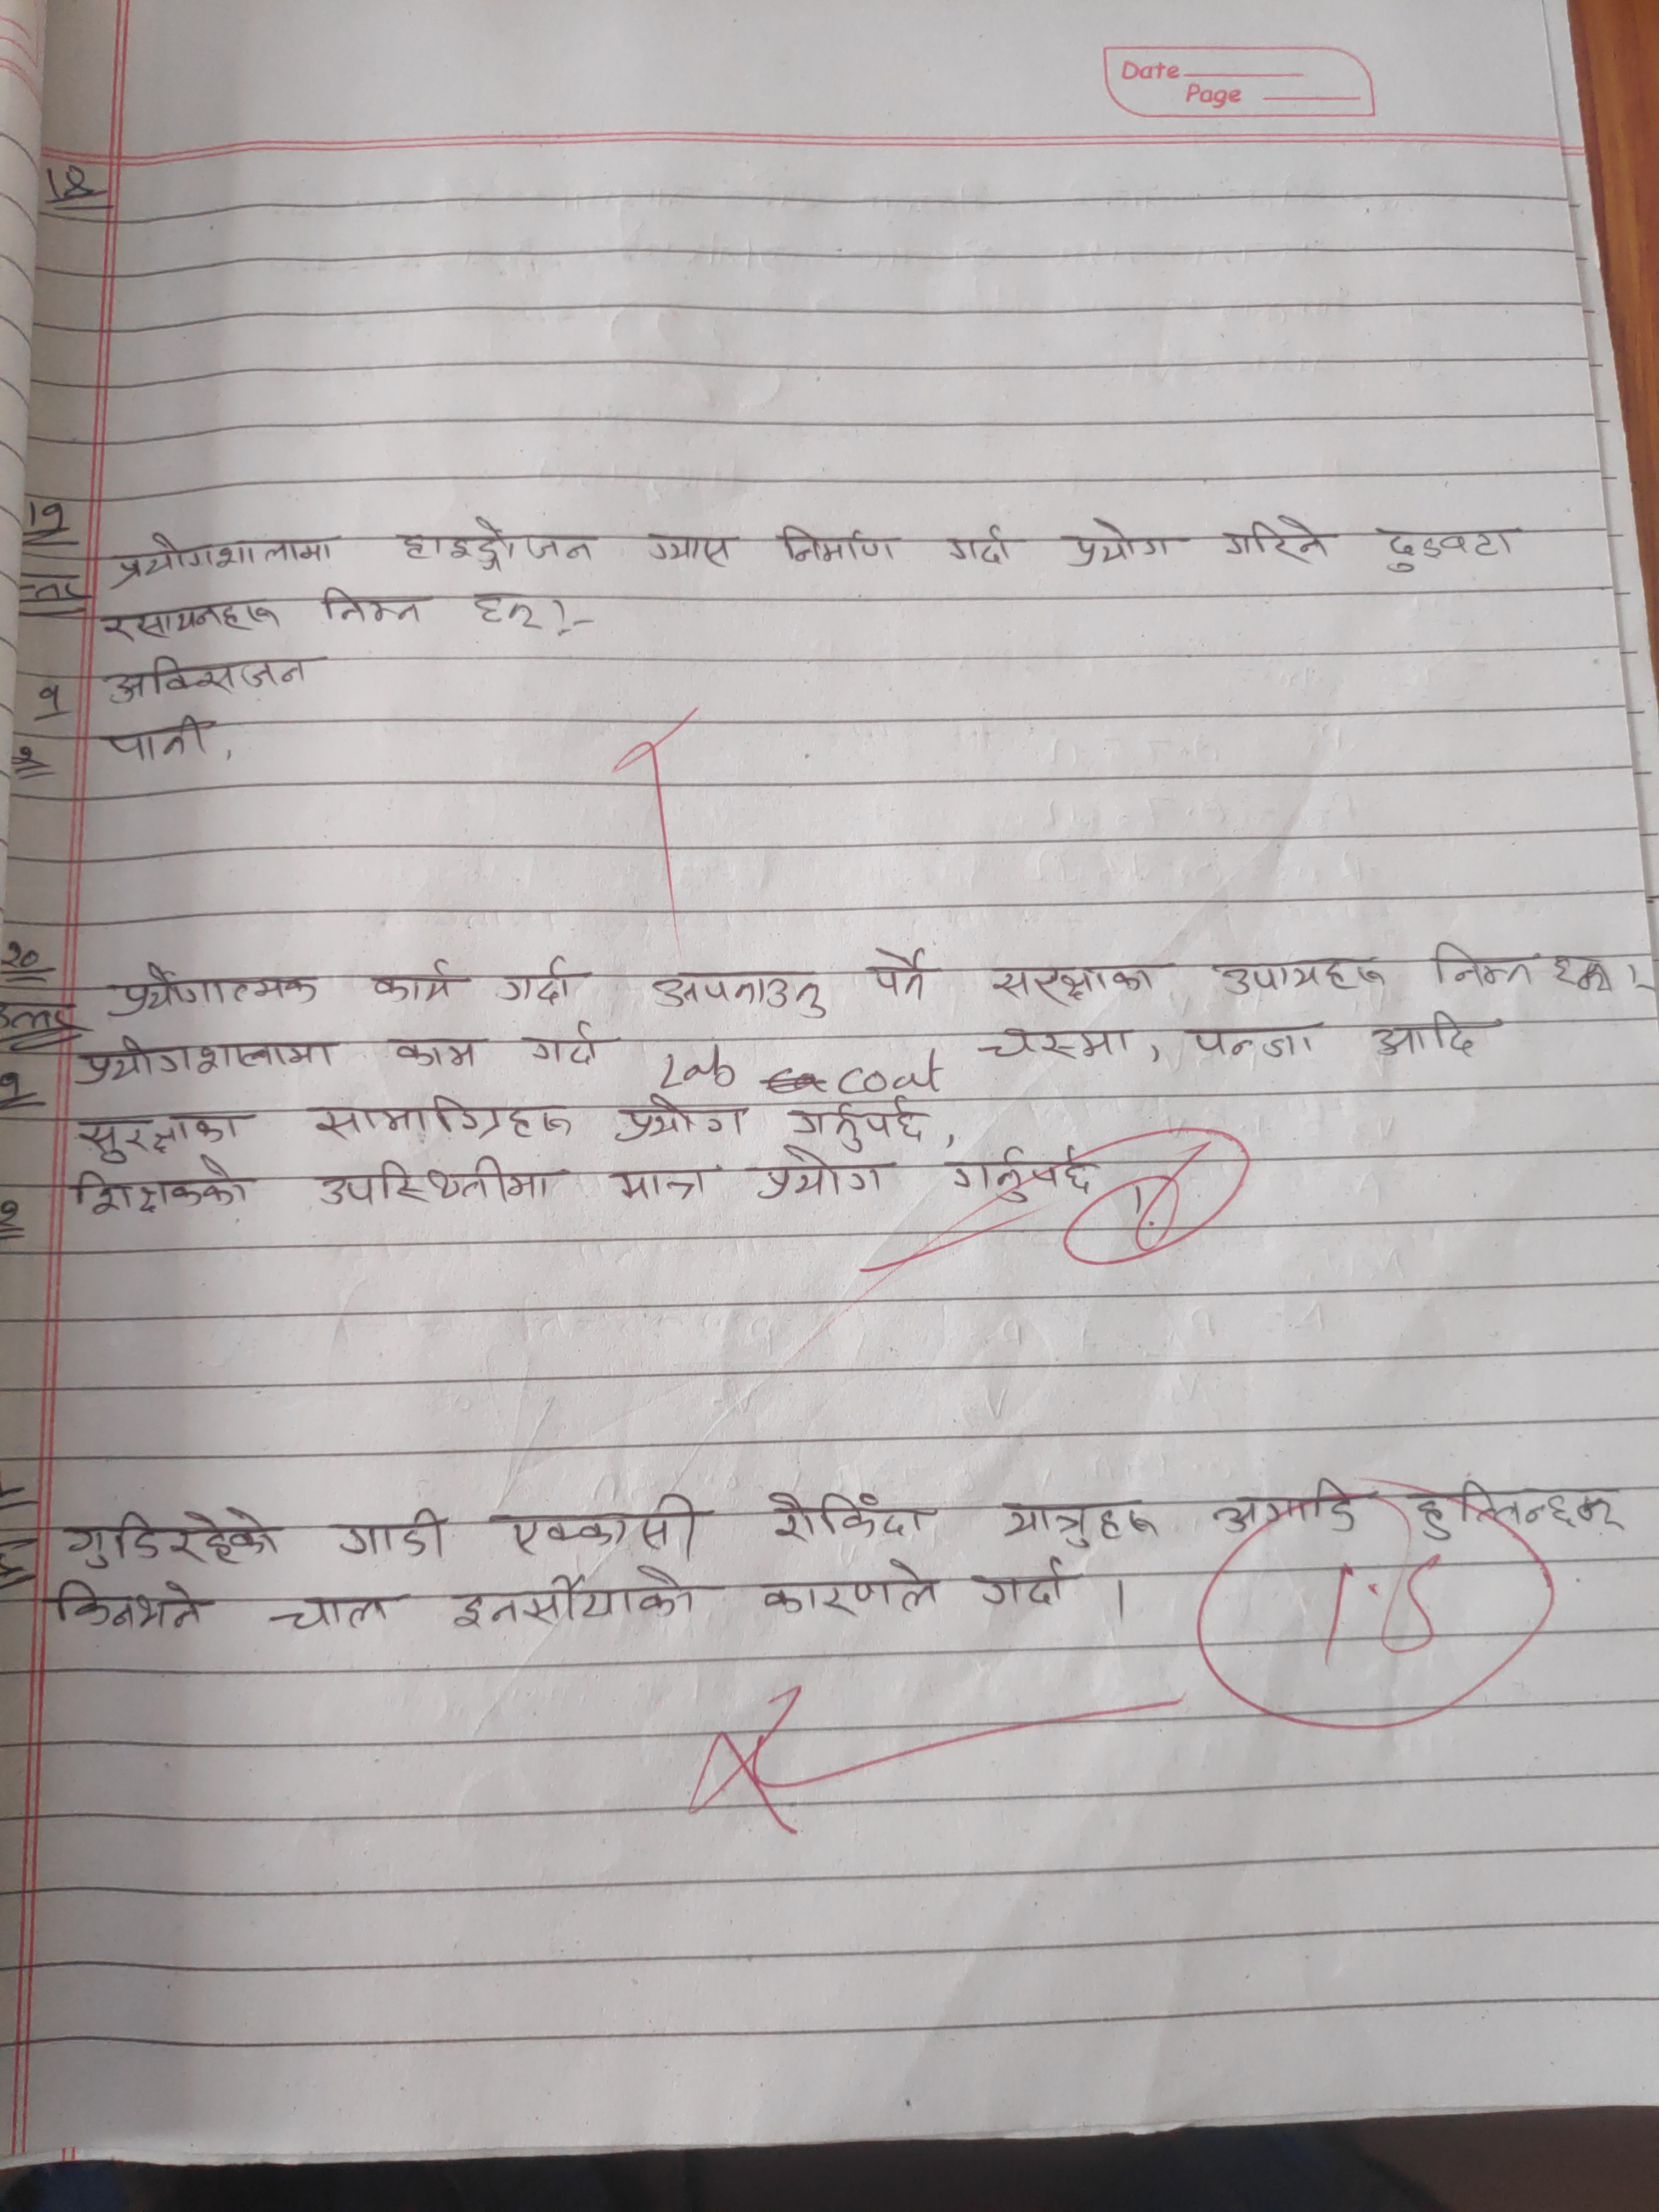 Date
Page
18
19
प्रयोगशालामा हाइड्रोजन ग्यास निर्माण गर्दा प्रयोग गरिने दुइवटा
रसायनहरू निम्न छन्:-
१ अक्सिजन
२ पानी,
२०
प्रयोगात्मक कार्य गर्दा अपनाउनु पर्ने सरक्षाका उपायहरू निम्न छन्:-
१ प्रयोगशालामा काम गर्दा Lab coat चस्मा, पन्जा आदि
सुरक्षाका सामाग्रिहरू प्रयोग गर्नुपर्छ,
२ शिक्षकको उपस्थितीमा मात्र प्रयोग गर्नुपर्छ
गुडिरहेको गाडी एक्कासी रोकिंदा यात्रुहरू अगाडि हुत्तिन्छन्
किनभने चाल इनर्सीयाको कारणले गर्दा ।
1.5